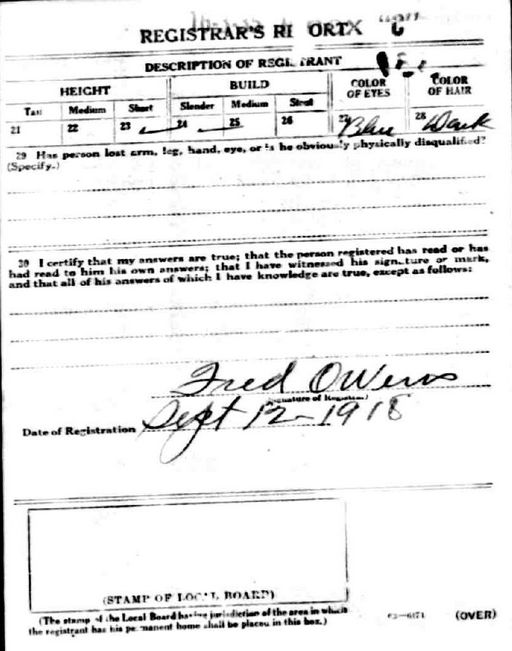 REGISTRAR'S REPORT
DESCRIPTION OF REGISTRANT
HEIGHT BUILD COLOR OF EYES COLOR OF HAIR
Tall Medium Short Slender Medium Stout
21 22 23 24 25 26 27 Blue 28 Dark
29 Has person lost arm, leg, hand, eye, or is he obviously physically disqualified?
(Specify.)
30 I certify that my answers are true; that the person registered has read or has
had read to him his own answers; that I have witnessed his signature or mark,
and that all of his answers of which I have knowledge are true, except as follows:
Fred Owens
(Signature of Registrar)
Date of Registration Sept 12-1918
(STAMP OF LOCAL BOARD)
(The stamp of the Local Board having jurisdiction of the area in which
the registrant has his permanent home shall be placed in this box.)
03—6171 (OVER)